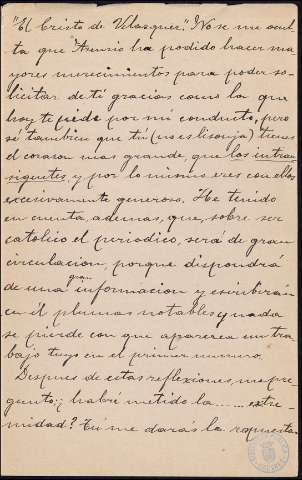 "El Cristo de Velasquez". No se me ocul-
ta que Asunio ha podido hacer ma
yores merecimientos para poder so-
licitar de ti gracias como la que
hoy te pide por mi conducto, pero
sé tambien que tú (no es lisonja) tienes
el corazon mas grande, que los intran
sigentes y por lo mismo eres con ellos
excesivamente generoso. He tenido
en cuenta, ademas, que, sobre ser
catolico el periodico, sera de gran
circulacion, porque dispondrá
de una gran informacion y escribirán
en él plumas notables y nada
se pierde con que aparezca un tra-
bajo tuyo en el primer numero.
Despues de estas reflexiones, me pre
gunto: ¿habré metido la ...... extre-
midad? Tu me darás la respuesta.